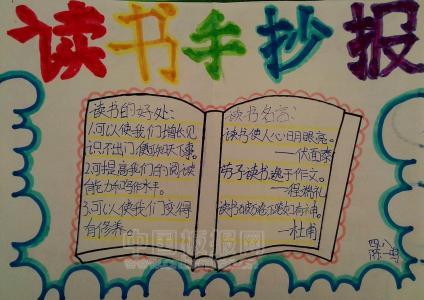 读书手抄报
读书的好处:
1.可以使我们增长见
识不出门,便知天下事。
2.可提高我们的阅读
能力和写作水平。
3.可以使我们变得
有修养。
读书名言:
读书使人心明眼亮。
——伏尔泰
劳于读书逸于作文。
——程端礼
读书破万卷下笔如有神。
——杜甫
四、八
中国板报网